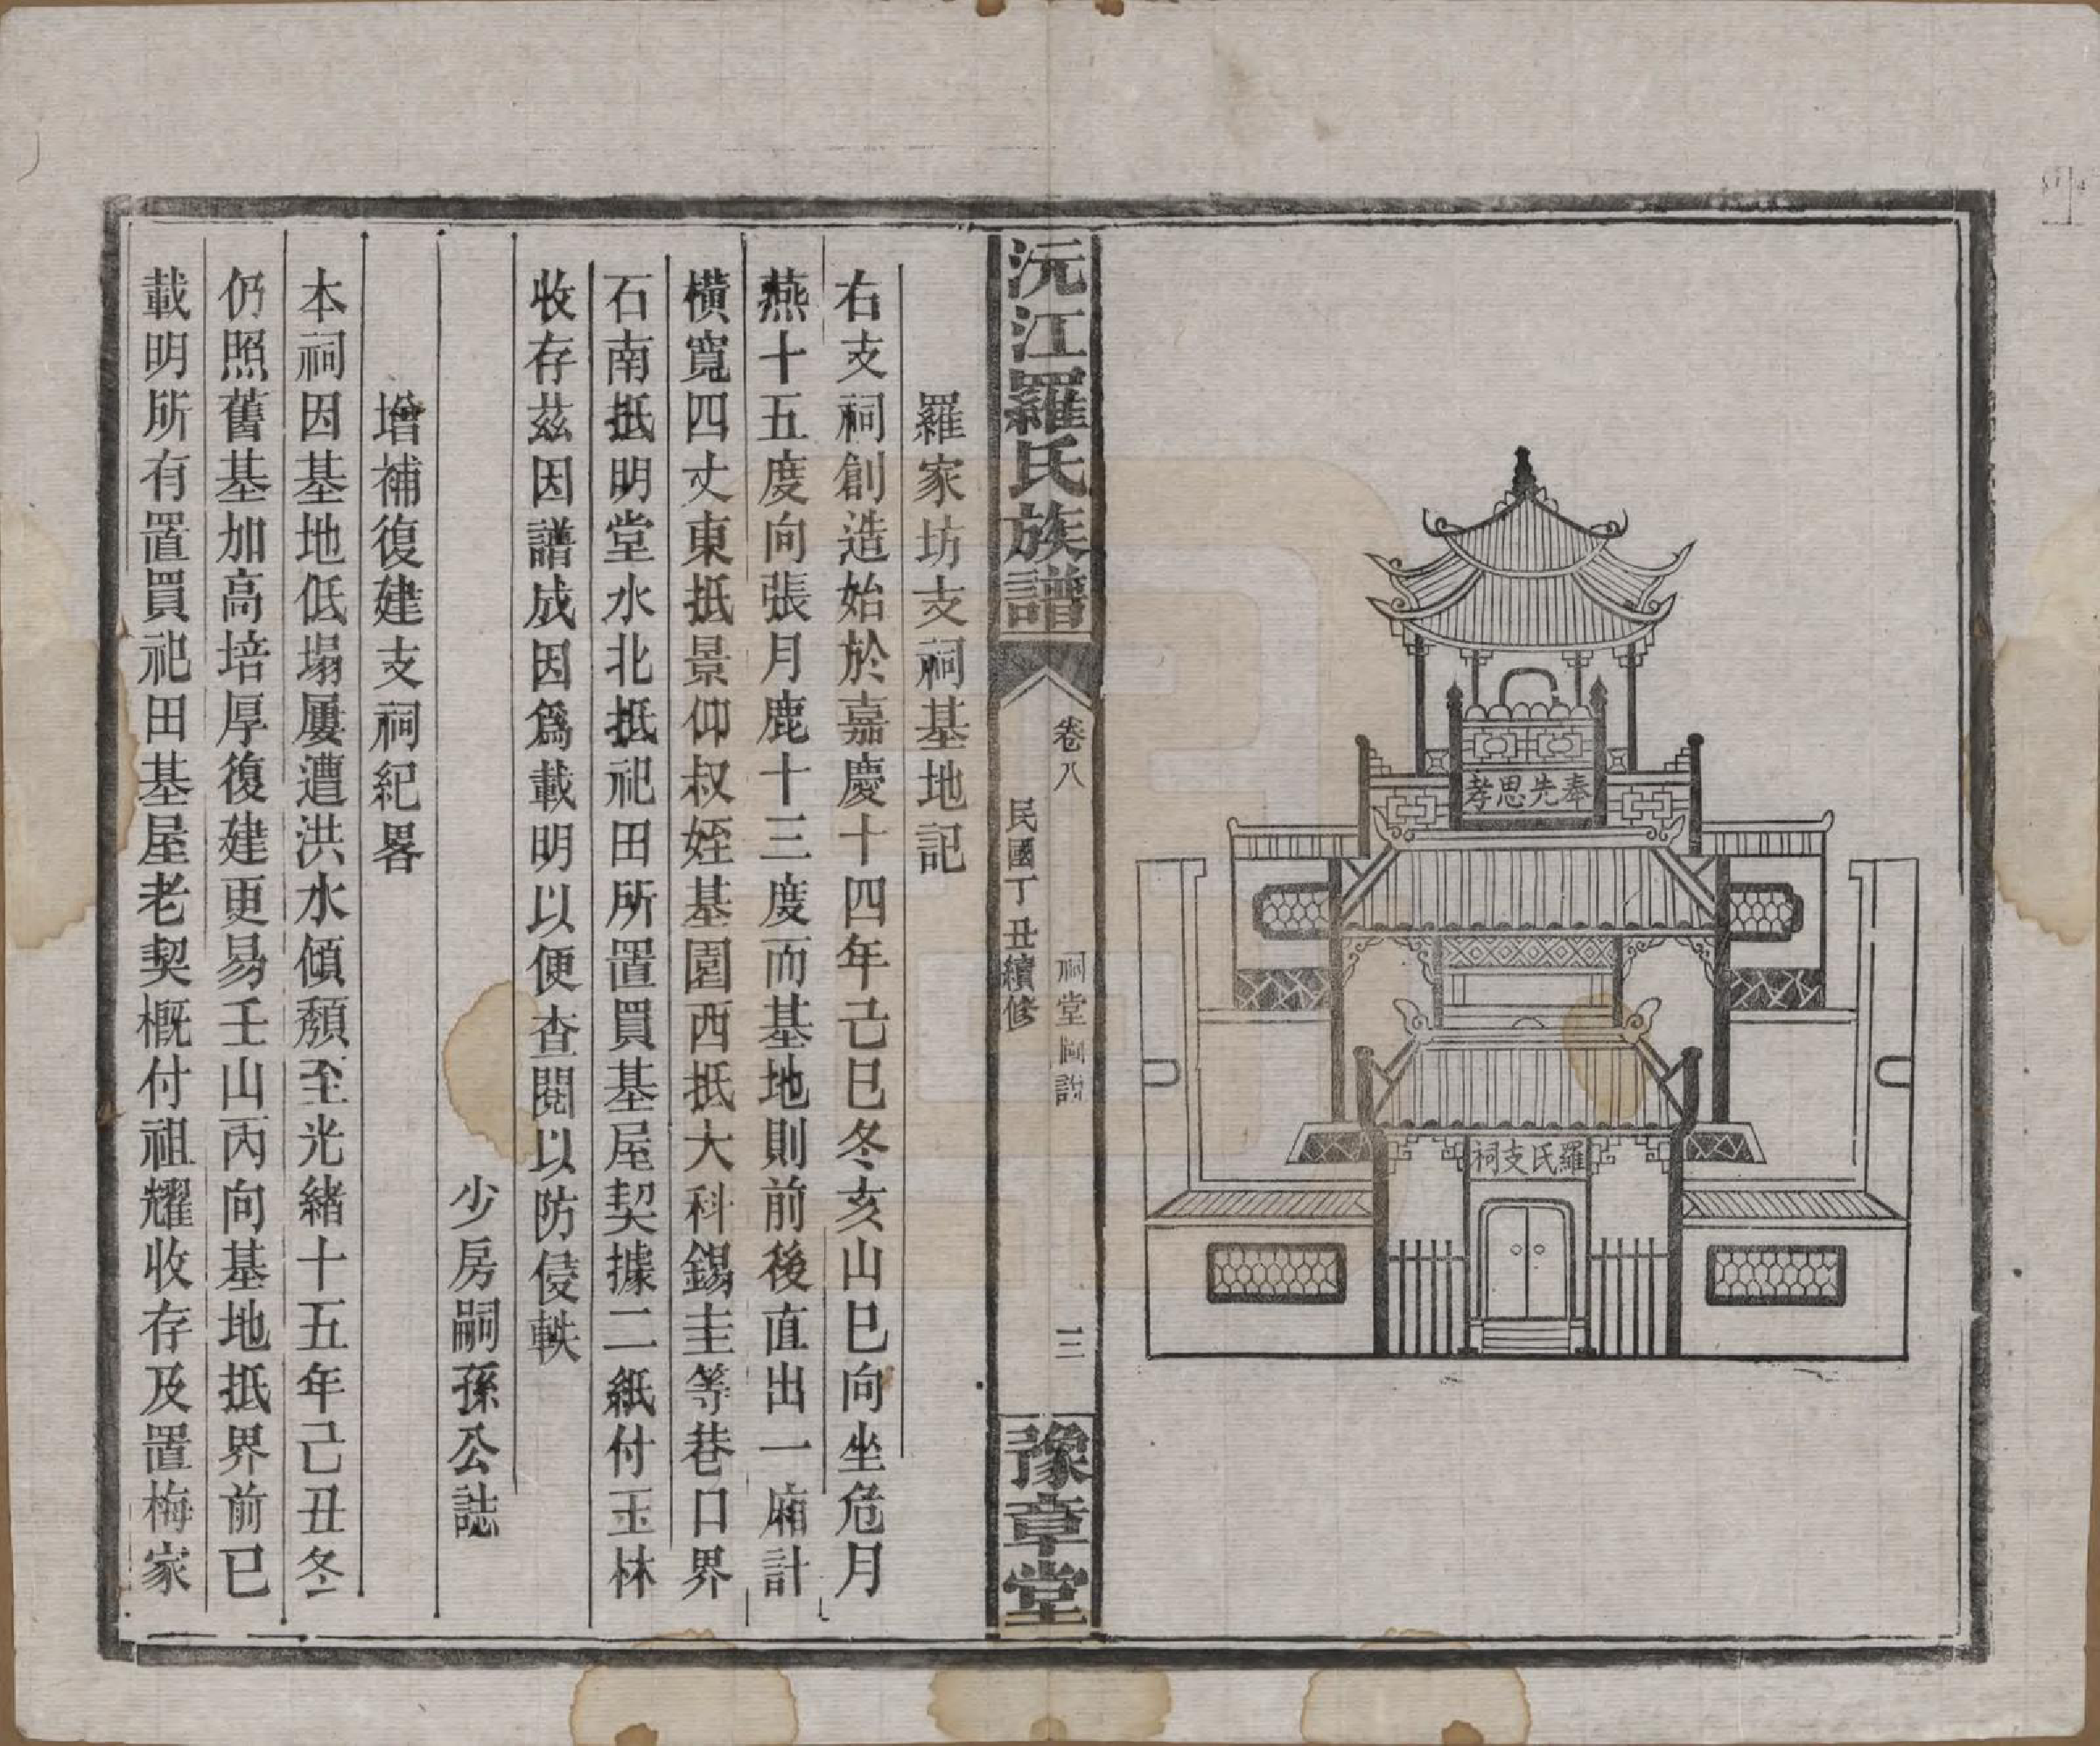 奉先思孝
羅氏支祠
沅江羅氏族譜
卷八
祠堂圖說
三
民國丁丑續修
豫章堂
羅家坊支祠基地記
右支祠創造始於嘉慶十四年己巳冬亥山巳向坐危月
燕十五度向張月鹿十三度而基地則前後直出一廂計
橫寬四丈東抵景仰叔姪基園西抵大科錫圭等巷口界
石南抵明堂水北抵祀田所置買基屋契據二紙付玉林
收存茲因譜成因為載明以便查閱以防侵軼
少房嗣孫公誌
增補復建支祠紀畧
本祠因基地低塌屢遭洪水傾頹至光緒十五年己丑冬
仍照舊基加高培厚復建更易壬山丙向基地抵界前已
載明所有置買祀田基屋老契概付祖耀收存及置梅家